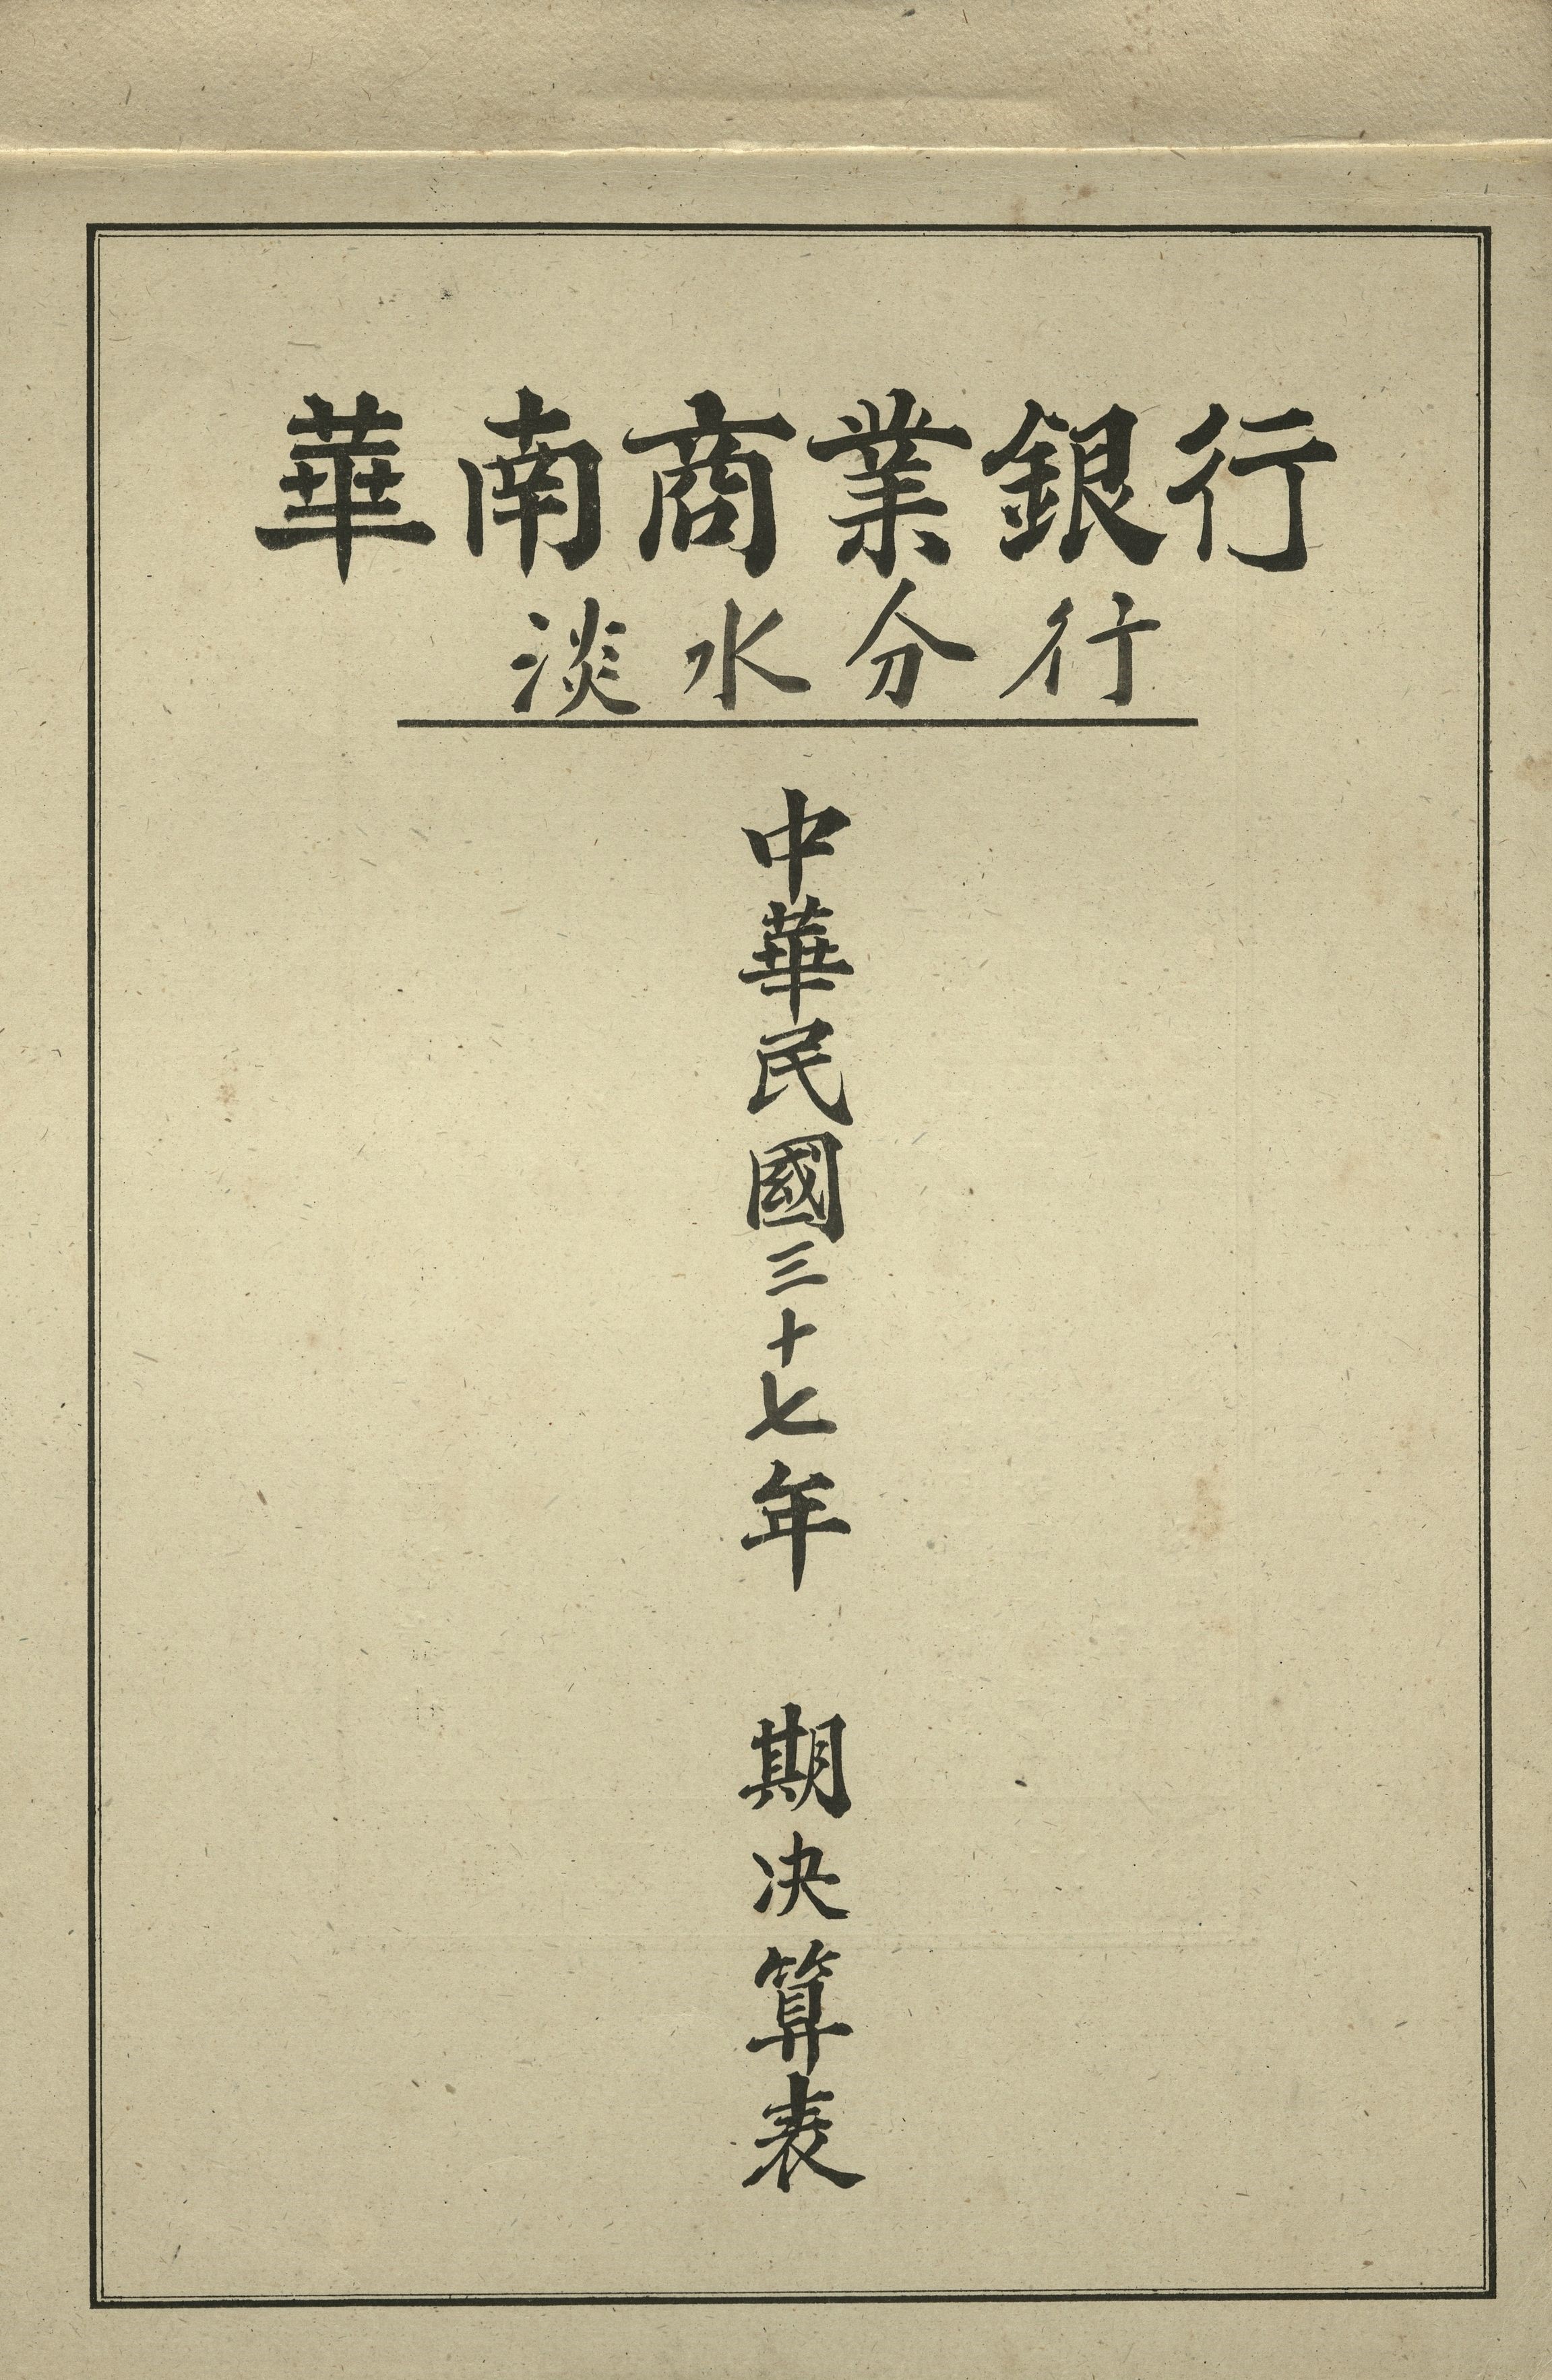 華南商業銀行
淡水分行
中華民國三十七年 期決算表